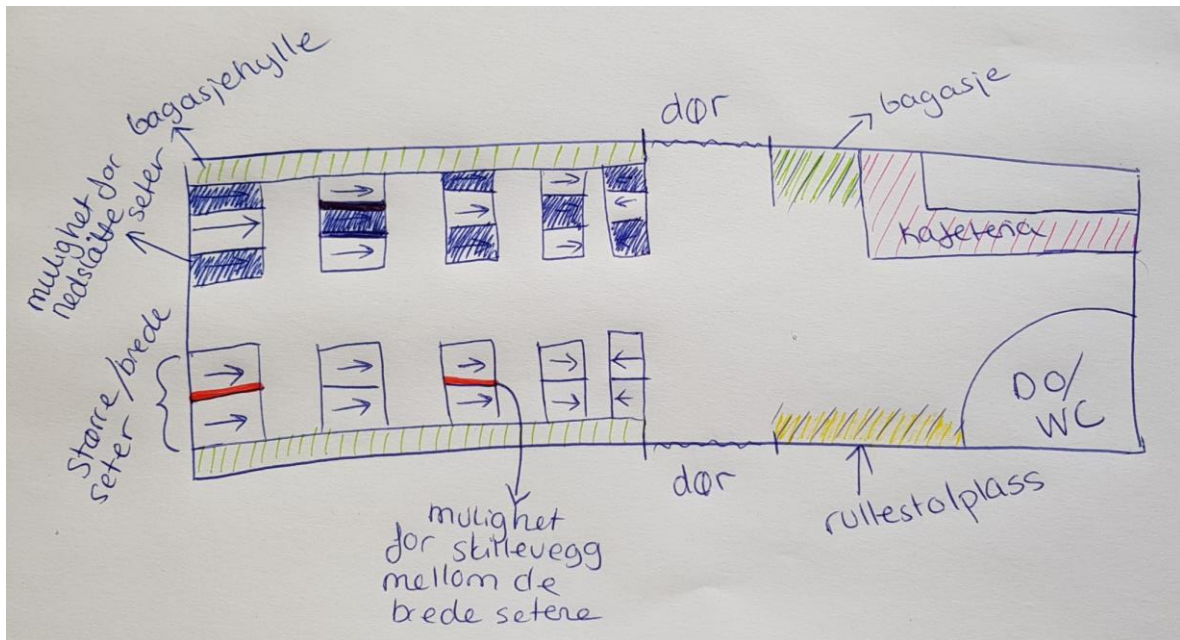 bagasjehylle
mulighet for
nedslåtte
seter
dør
bagasje
Kafeteria
Større/brede
seter
DO/
WC
dør
rullestolplass
mulighet
for skillevegg
mellom de
brede setene